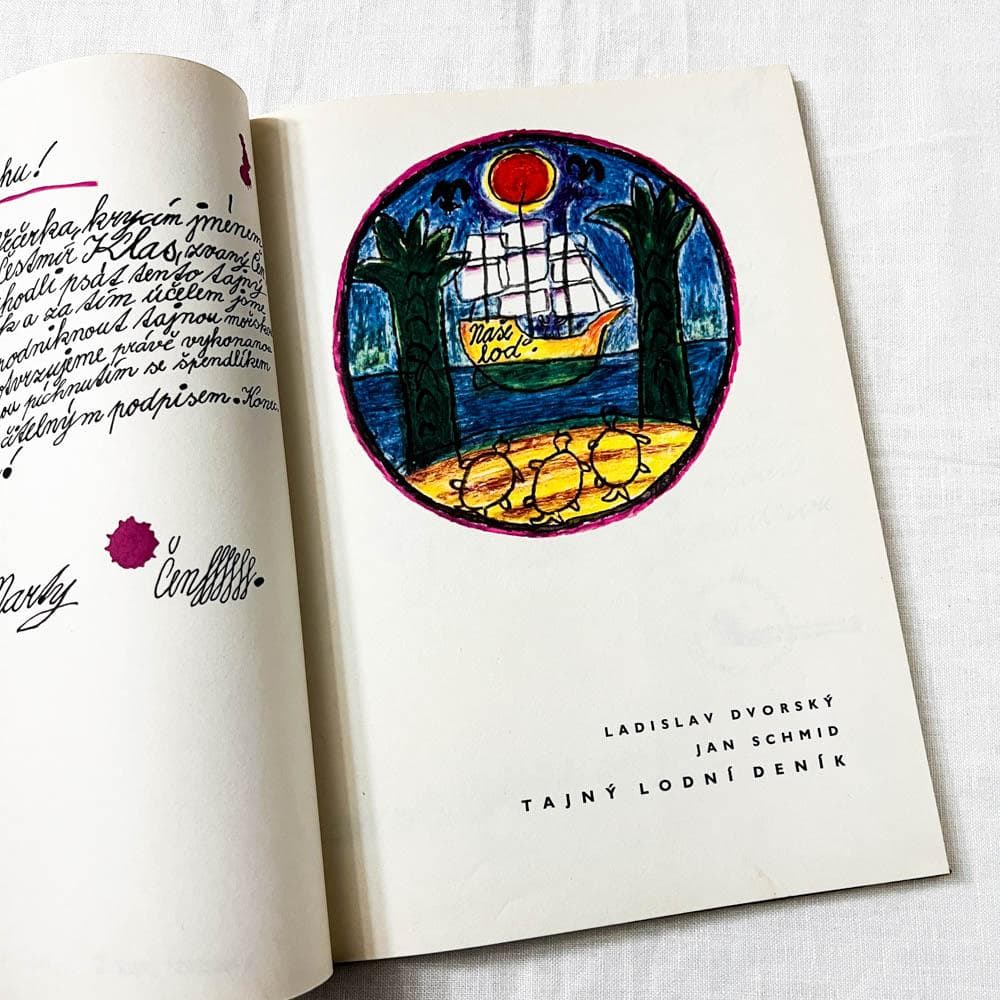 hu!
krycím jménem
Čestmír Klas, zvaný Čen
psát tento tajný
k a za tím účelem jsme
podniknout tajnou mořskou
potvrzujeme právě vykonanou
píchnutím se špendlíkem
podpisem. Konec
!
Marty
Čenffffff.
Naše
loď.
LADISLAV DVORSKÝ
JAN SCHMID
TAJNÝ LODNÍ DENÍK